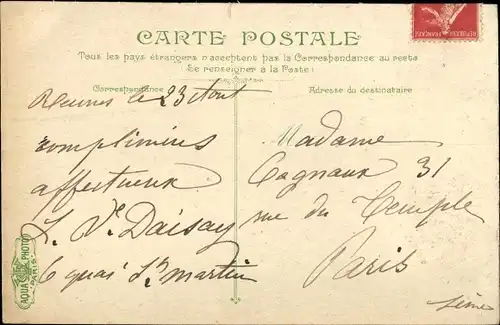 CARTE POSTALE
Tous les pays étrangers n'acceptent pas la Correspondance au recto
(Se renseigner à la Poste)
Correspondance
Adresse du destinataire
Rennes le 23 Aout
compliments
affectueux
6 quai St martin
Madame
Cagnaux 31
rue du Temple
Paris
Seine
AQUA PHOTO
PARIS
REPUBLIQUE FRANÇAISE